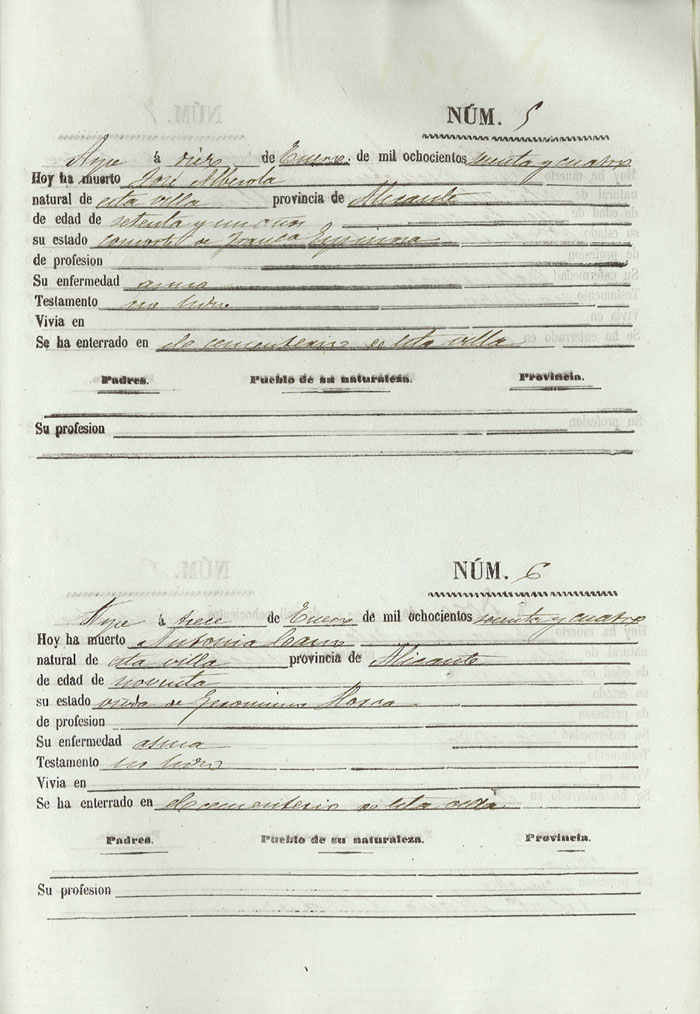 NÚM. 5
Aspe á diez de Enero de mil ochocientos sesenta y cuatro
Hoy ha muerto José Alberola
natural de esta villa provincia de Alicante
de edad de setenta y un años
su estado consorte de Franca Espinosa
de profesion
Su enfermedad asma
Testamento no hizo
Vivia en
Se ha enterrado en el cementerio de esta villa
Padres. Pueblo de su naturaleza. Provincia.
Su profesion
NÚM. 6
Aspe á trece de Enero de mil ochocientos sesenta y cuatro
Hoy ha muerto Antonia
natural de esta villa provincia de Alicante
de edad de noventa
su estado viuda de Geronimo
de profesion
Su enfermedad asma
Testamento no hizo
Vivia en
Se ha enterrado en el cementerio de esta villa
Padres. Pueblo de su naturaleza. Provincia.
Su profesion